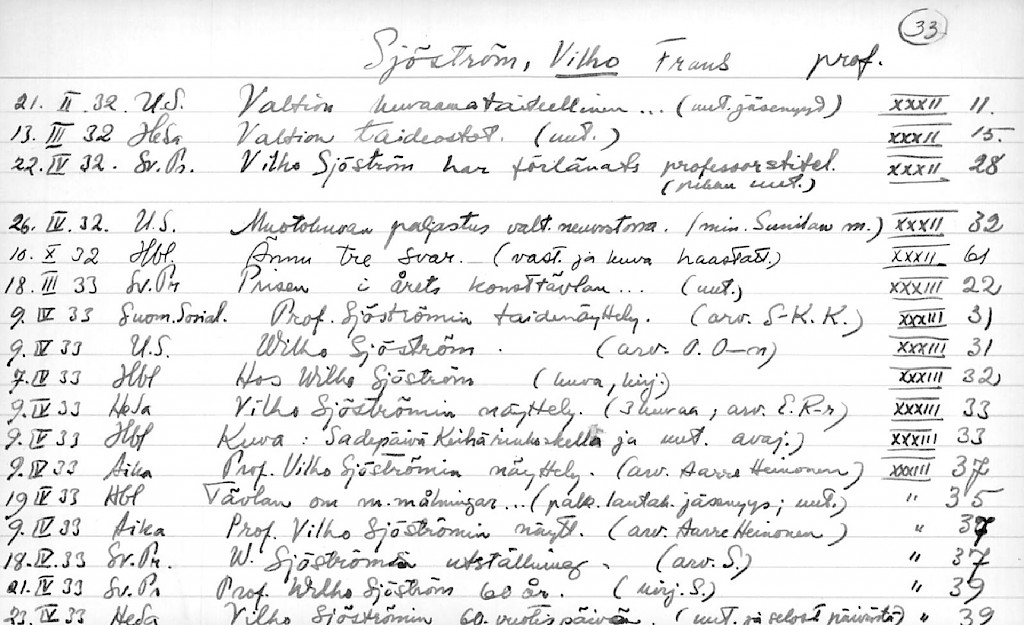 33
Sjöström, Vilho Frans prof.
21. II. 32. U.S. Valtion kuvaamataiteellinen... (uut. jäsenyyd) XXXII 11.
13. III 32 HeSa Valtion taideostot. (uut.) XXXII 15.
22. IV 32. Sv.Pr. Vilho Sjöström har förlänats professorstitel. XXXII 28
(pikku uut.)
26. IV. 32. U.S. Muotokuvan paljastus valt.neuvostossa. (min. Sunilan m.) XXXII 32
10. X 32 Hbl. Ännu tre svar. (vast. ja kuva haastatt.) XXXII 61
18. III 33 Sv.Pr Prisen i årets konsttävlan... (uut.) XXXIII 22
9. IV 33 Suom.Sosial. Prof. Sjöströmin taidenäyttely. (arv. S-K.K.) XXXIII 31
9. IV 33 U.S. Wilho Sjöström. (arv. O.O-n) XXXIII 31
7. IV 33 Hbl Hos Wilho Sjöström (kuva, kirj.) XXXIII 32
9. IV 33 HeSa Vilho Sjöströmin näyttely. (3 kuvaa, arv. E.R-r) XXXIII 33
9. IV 33 Hbl Kuva: Sadepäivä ja uut. avaj.) XXXIII 33
9. IV 33 Aika Prof. Vilho Sjöströmin näyttely. (arv. Aarre Heinonen) XXXIII 37
19 IV 33 Hbl Tävlan om m.målningar...(palk.lautak. jäsenyys; uut.) " 35
9. IV 33 Aika Prof. Vilho Sjöströmin näytt. (arv. Aarre Heinonen) " 37
18. IV. 33 Sv.Pr. W. Sjöströms utställning. (arv. S.) " 37
21. IV 33 Sv.Pr Prof. Wilho Sjöström 60 år. (kirj. S.) " 39
23. IV 33 HeSa Vilho Sjöströmin 60-vuotispäivä. (uut. ja selost. päivästä) " 39